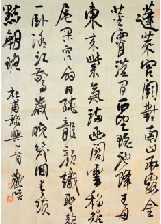 蓬萊宮闕對南山承露金
莖霄漢間西望瑤池降王母
東來紫氣滿函關雲移雉
尾開宮扇日繞龍鱗識聖顏
一臥滄江驚歲晚幾回青瑣
點朝班 杜甫秋興一首